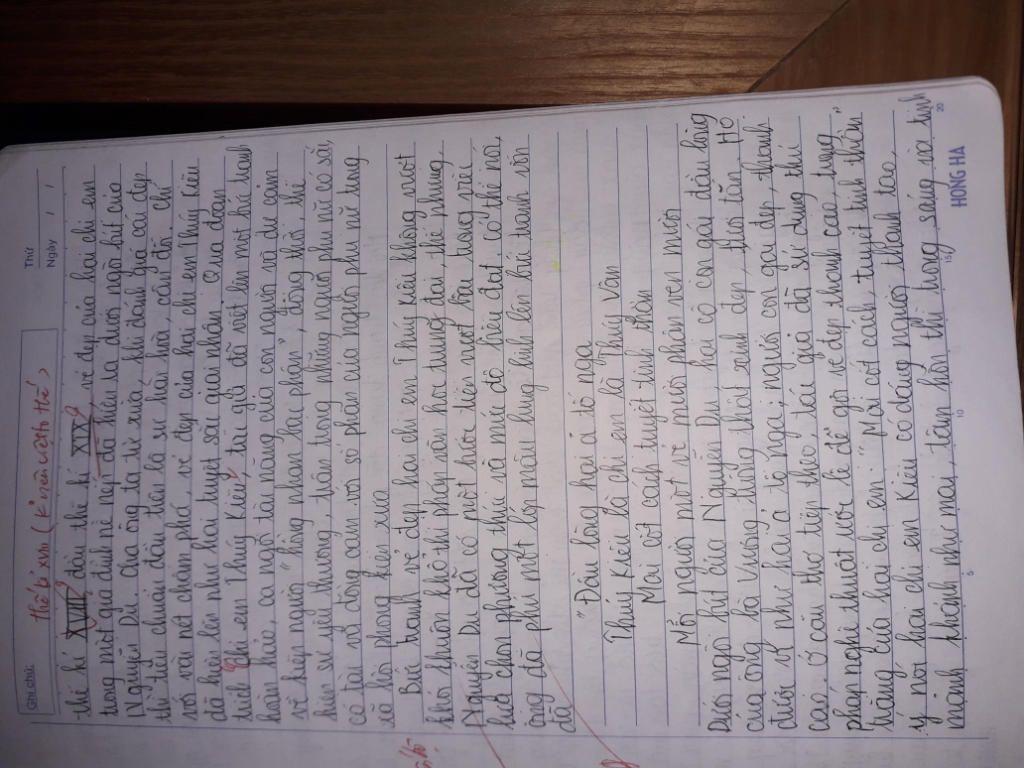 Thứ
Ngày / /
Ghi chú:
thế kỉ XVIII (kỉ niên
thế kỉ XVIII đầu thế kỉ XIX, vẻ đẹp của hai chị em
trong một gia đình nề nếp đã hiện ra dưới ngòi bút của
Nguyễn Du. cha ông ta từ xưa khi đánh giá cái đẹp
thì tiêu chuẩn đầu tiên là sự hài hòa, cân đối. chỉ
với vài nét chấm phá, vẻ đẹp của hai chị em Thúy Kiều
đã hiện lên như hai tuyệt sắc giai nhân. Qua đoạn
trích Chị em Thúy Kiều, tác giả đã viết lên một bức tranh
hoàn hảo, ca ngợi tài năng của con người và dự cảm
về kiếp người "hồng nhan bạc phận", đồng thời, thể
hiện sự yêu thương, trân trọng những người phụ nữ có sắc,
có tài và đồng cảm với số phận của người phụ nữ trong
xã hội phong kiến xưa
Bức tranh vẻ đẹp hai chị em Thúy Kiều không vượt
khỏi khuôn khổ thi pháp văn học trung đại, thế nhưng
Nguyễn Du đã có một bước tiến vượt bậc trong việc
lựa chọn phương thức và mức độ biểu đạt, có thể nói,
ông đã phủ một lớp màu lung linh lên bức tranh vốn
đã
"Đầu lòng hai ả tố nga
Thúy Kiều là chị em là Thúy Vân
Mai cốt cách tuyết tinh thần
Mỗi người một vẻ mười phân vẹn mười
Dưới ngòi bút của Nguyễn Du, hai cô con gái đầu lòng
của ông bà Vương không thật xinh đẹp, theo tân. Họ
được ví như hai ả tố nga, người con gái đẹp, thanh
cao. Ở câu thơ tiếp theo, tác giả đã sử dụng thủ
pháp nghệ thuật ước lệ để gợi vẻ đẹp thanh cao, trong
trắng của hai chị em: "Mai cốt cách, tuyết tinh thần"
ý nói hai chị em Kiều có dáng người thanh tao,
mảnh khảnh như mai, tâm hồn thì trong sáng và tinh
5 10 15 20
HỒNG HÀ